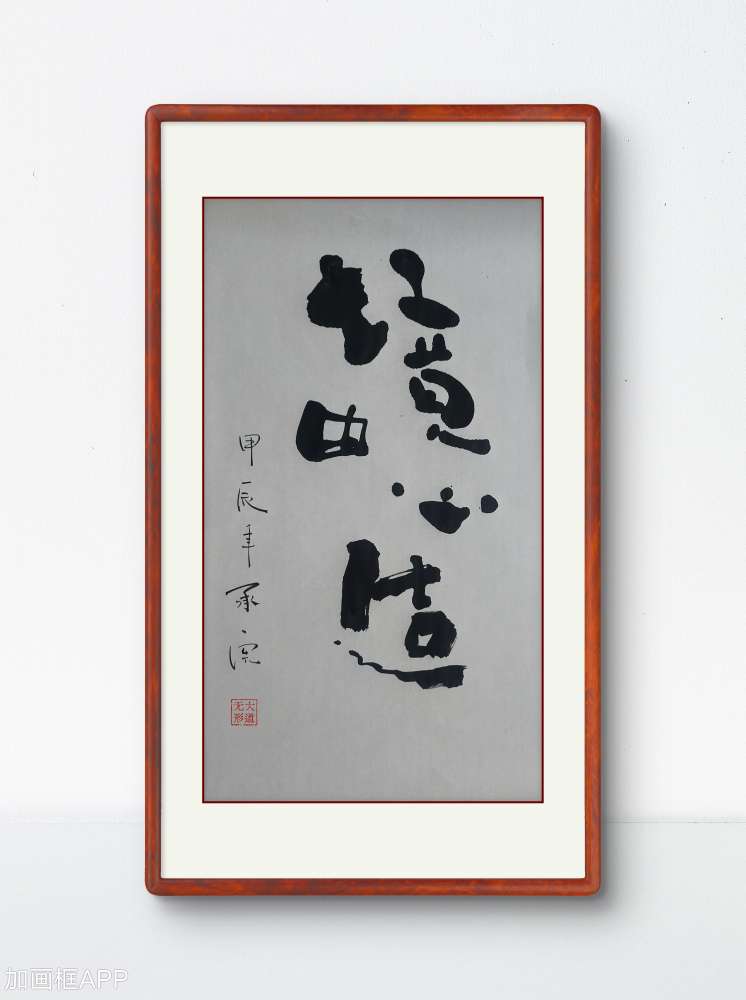 境由心造
甲辰年承浣
大道
无形
加画框APP